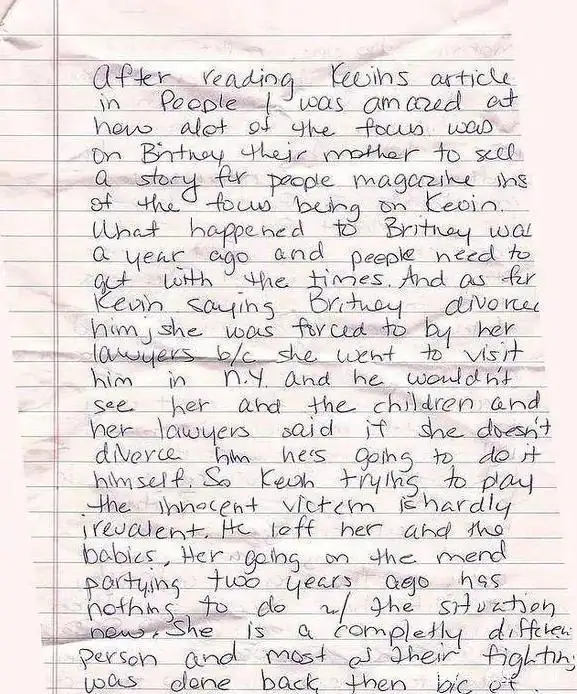 After reading Kevins article
in People I was amazed at
how alot of the focus was
on Britney their mother to sell
a story for people magazine ins
of the focus being on Kevin.
What happened to Britney was
a year ago and people need to
get with the times. And as for
Kevin saying Britney divorced
him, she was forced to by her
lawyers b/c she went to visit
him in N.Y. and he wouldn't
see her and the children and
her lawyers said if she doesn't
divorce him hes going to do it
himself. So Kevin trying to play
the innocent victim is hardly
irevalent. He left her and the
babies. Her going on the mend
partying two years ago has
nothing to do w/ the situation
now. She is a completly differen
person and most of their fighting
was done back then b/c of